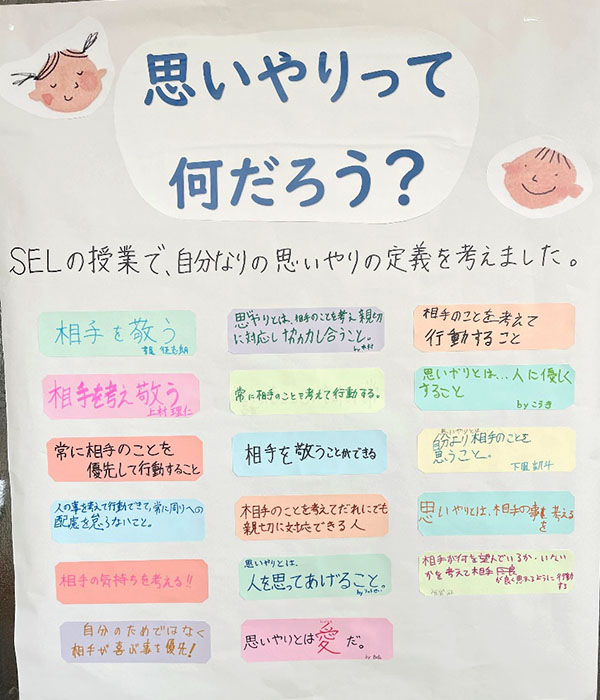 思いやりって
何だろう？
SELの授業で、自分なりの思いやりの定義を考えました。
相手を敬う
思やりとは、相手のことを考え親切
に対応し協力し合うこと。
by
相手のことを考えて
行動すること
相手を考え敬う
上村理仁
常に相手のことを考えて行動する。
思いやりとは…人に優しく
すること
byこうき
常に相手のことを
優先して行動すること
相手を敬うことができる
思いやりとは
自分より相手のことを
思うこと。
人の事を考えて行動できて、常に周りへの
配慮を怠らないこと。
相手のことを考えてだれにでも
親切に対応できる人
思いやりとは、相手の事を考える
を
相手の気持ちを考える!!
思いやりとは、
人を思ってあげること。
by
相手が何を望んでいるか・いない
かを考えて相手
が良く思えるように行動
する
自分のためではなく
相手が喜ぶ事を優先!
思いやりとは愛だ。
by